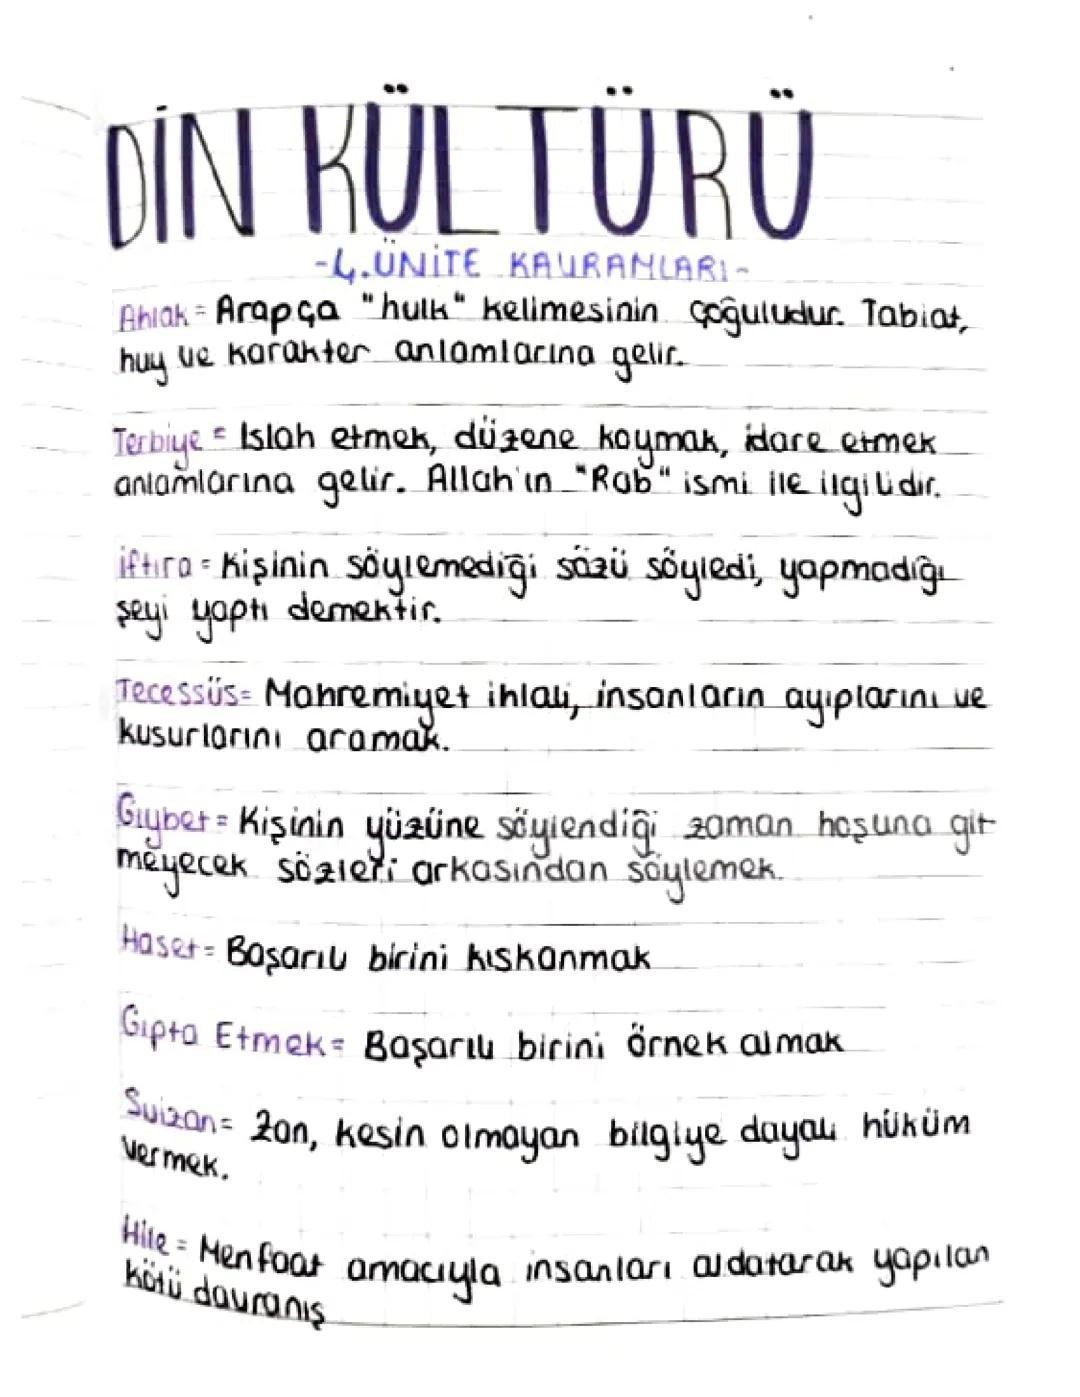 DİN KÜLTÜRÜ
-4.ÜNİTE KAVRAMLARI-
Ahlak = Arapça "hulk" kelimesinin çoğuludur. Tabiat,
huy ve karakter anlamlarına gelir.
Terbiye = Islah etmek, düzene koymak, idare etmek
anlamlarına gelir. Allah'ın "Rab" ismi ile ilgilidir.
İftira = Kişinin söylemediği sözü söyledi, yapmadığı
şeyi yaptı demektir.
Tecessüs = Mahremiyet ihlali, insanların ayıplarını ve
kusurlarını aramak.
Gıybet = Kişinin yüzüne söylendiği zaman hoşuna git
meyecek sözleri arkasından söylemek.
Haset = Başarılı birini kıskanmak
Gıpta Etmek = Başarılı birini örnek almak
Suizan = Zan, kesin olmayan bilgiye dayalı hüküm
vermek.
Hile = Menfaat amacıyla insanları aldatarak yapılan
kötü davranış